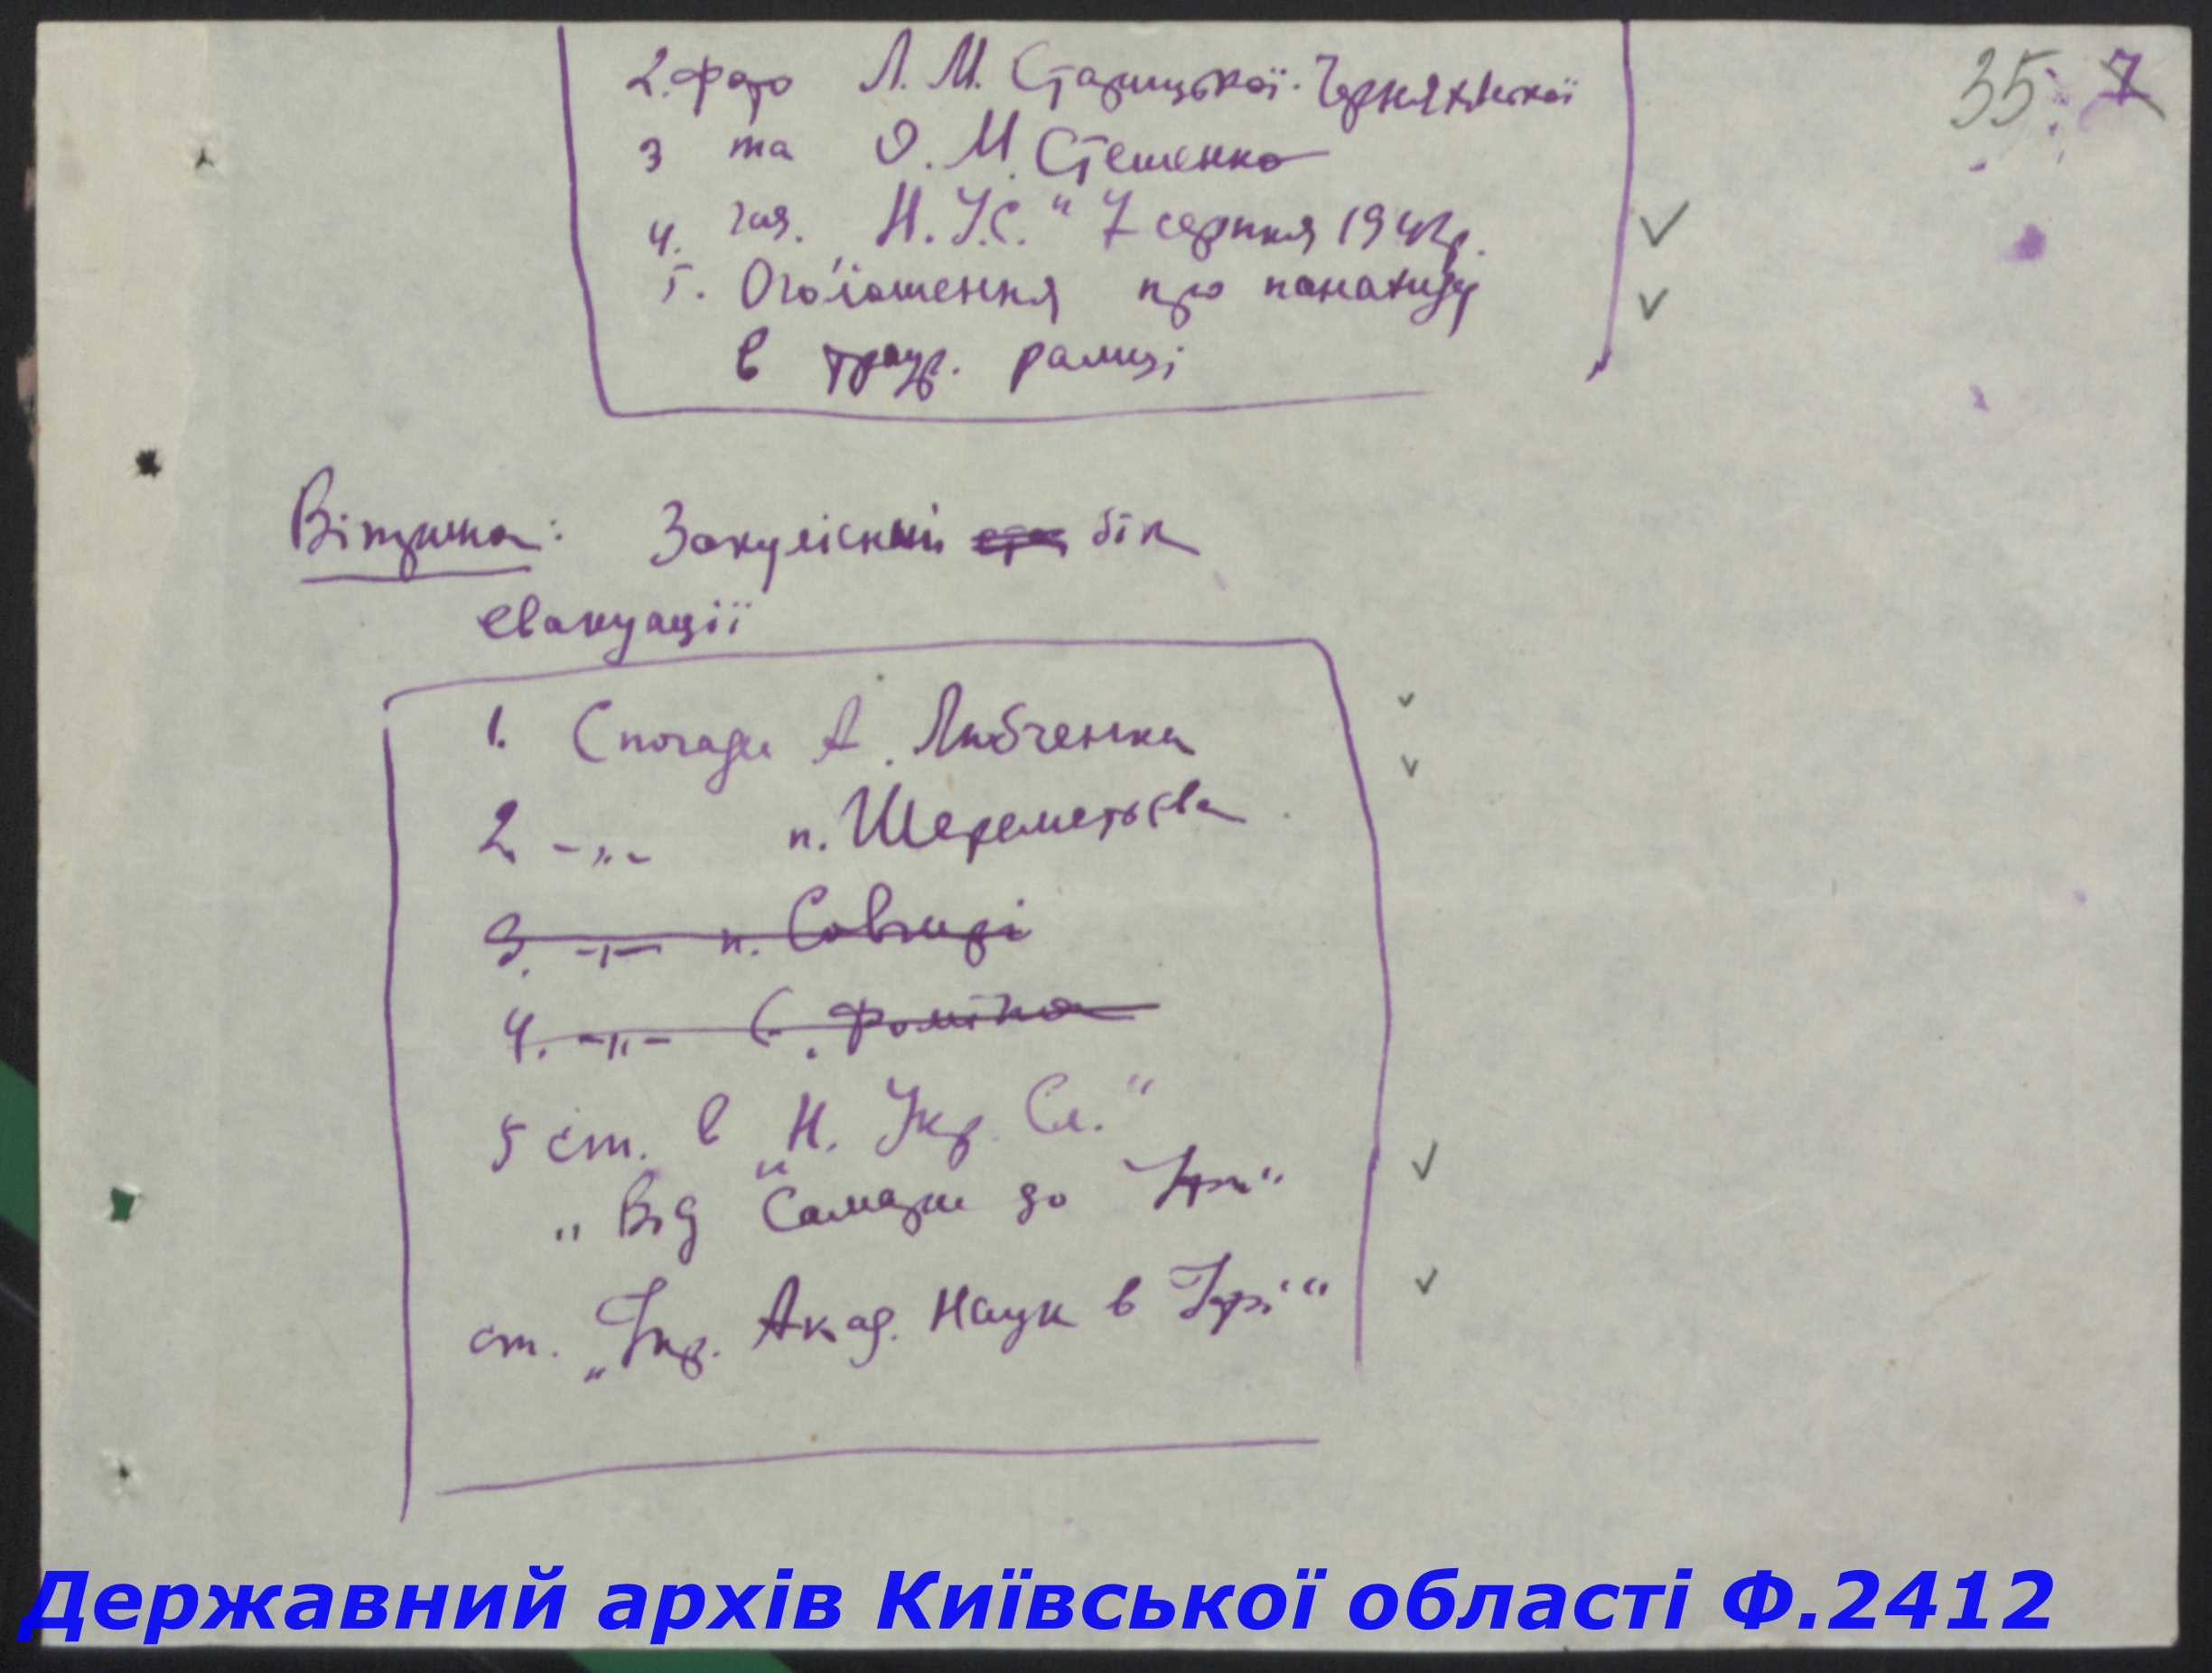 35. 7
2. фото Л. М. Старицької-Черняхівської
3 та О. М. Стешенко
4. газ. „Н. У.С." 7 серпня 1942 р.
5. Оголошення про панахиду
в траур. рамці
Вітрина: Закулісний бік
евакуації
1. Спогади А. Любченка
2 -„- п. Шереметьєва
3. -„- п. Совгирі
4. -„- Є. Фоміна
5 ст. в „Н. Укр. Сл."
„Від Самари до Уфи"
ст. „Укр. Акад. Наук в Уфі"
Державний архів Київської області Ф.2412